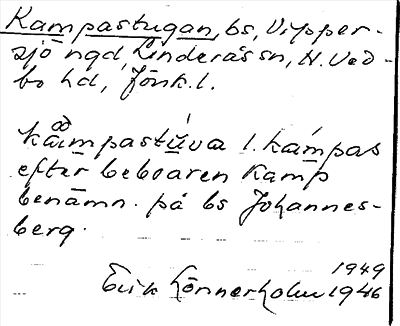 Kampastugan, bs, Vipper-
sjö ngd, Linderås sn, N. Ved-
bo hd, Jönk. l.
kåimpastùva l. kámpas
efter beboaren Kamp
benämn. på bs Johannes-
berg.
1949
Erik Lönnerholm 1946